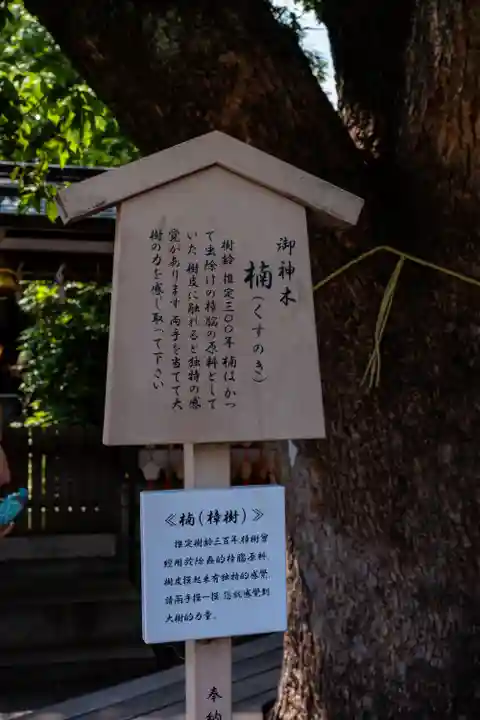 御神木
楠(くすのき)
樹齢 推定三〇〇年 楠は かつ
て虫除けの樟脳の原料として
いた 樹皮に触れると独特の感
覚があります 両手を当てて大
樹の力を感じ取って下さい
《楠(樟樹)》
推定樹齡三百年,樟樹曾
經用於除蟲的樟腦原料,
樹皮摸起來有獨特的感覺,
請兩手摸一摸,您就感覺到
大樹的力量。
奉納